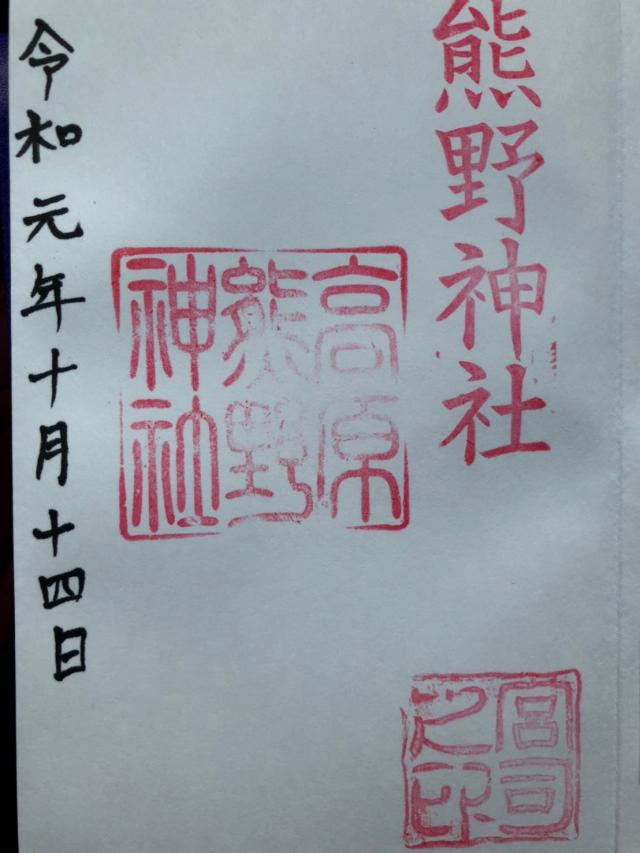 熊野神社
高原
熊野
神社
宮司
之印
令和元年十月十四日